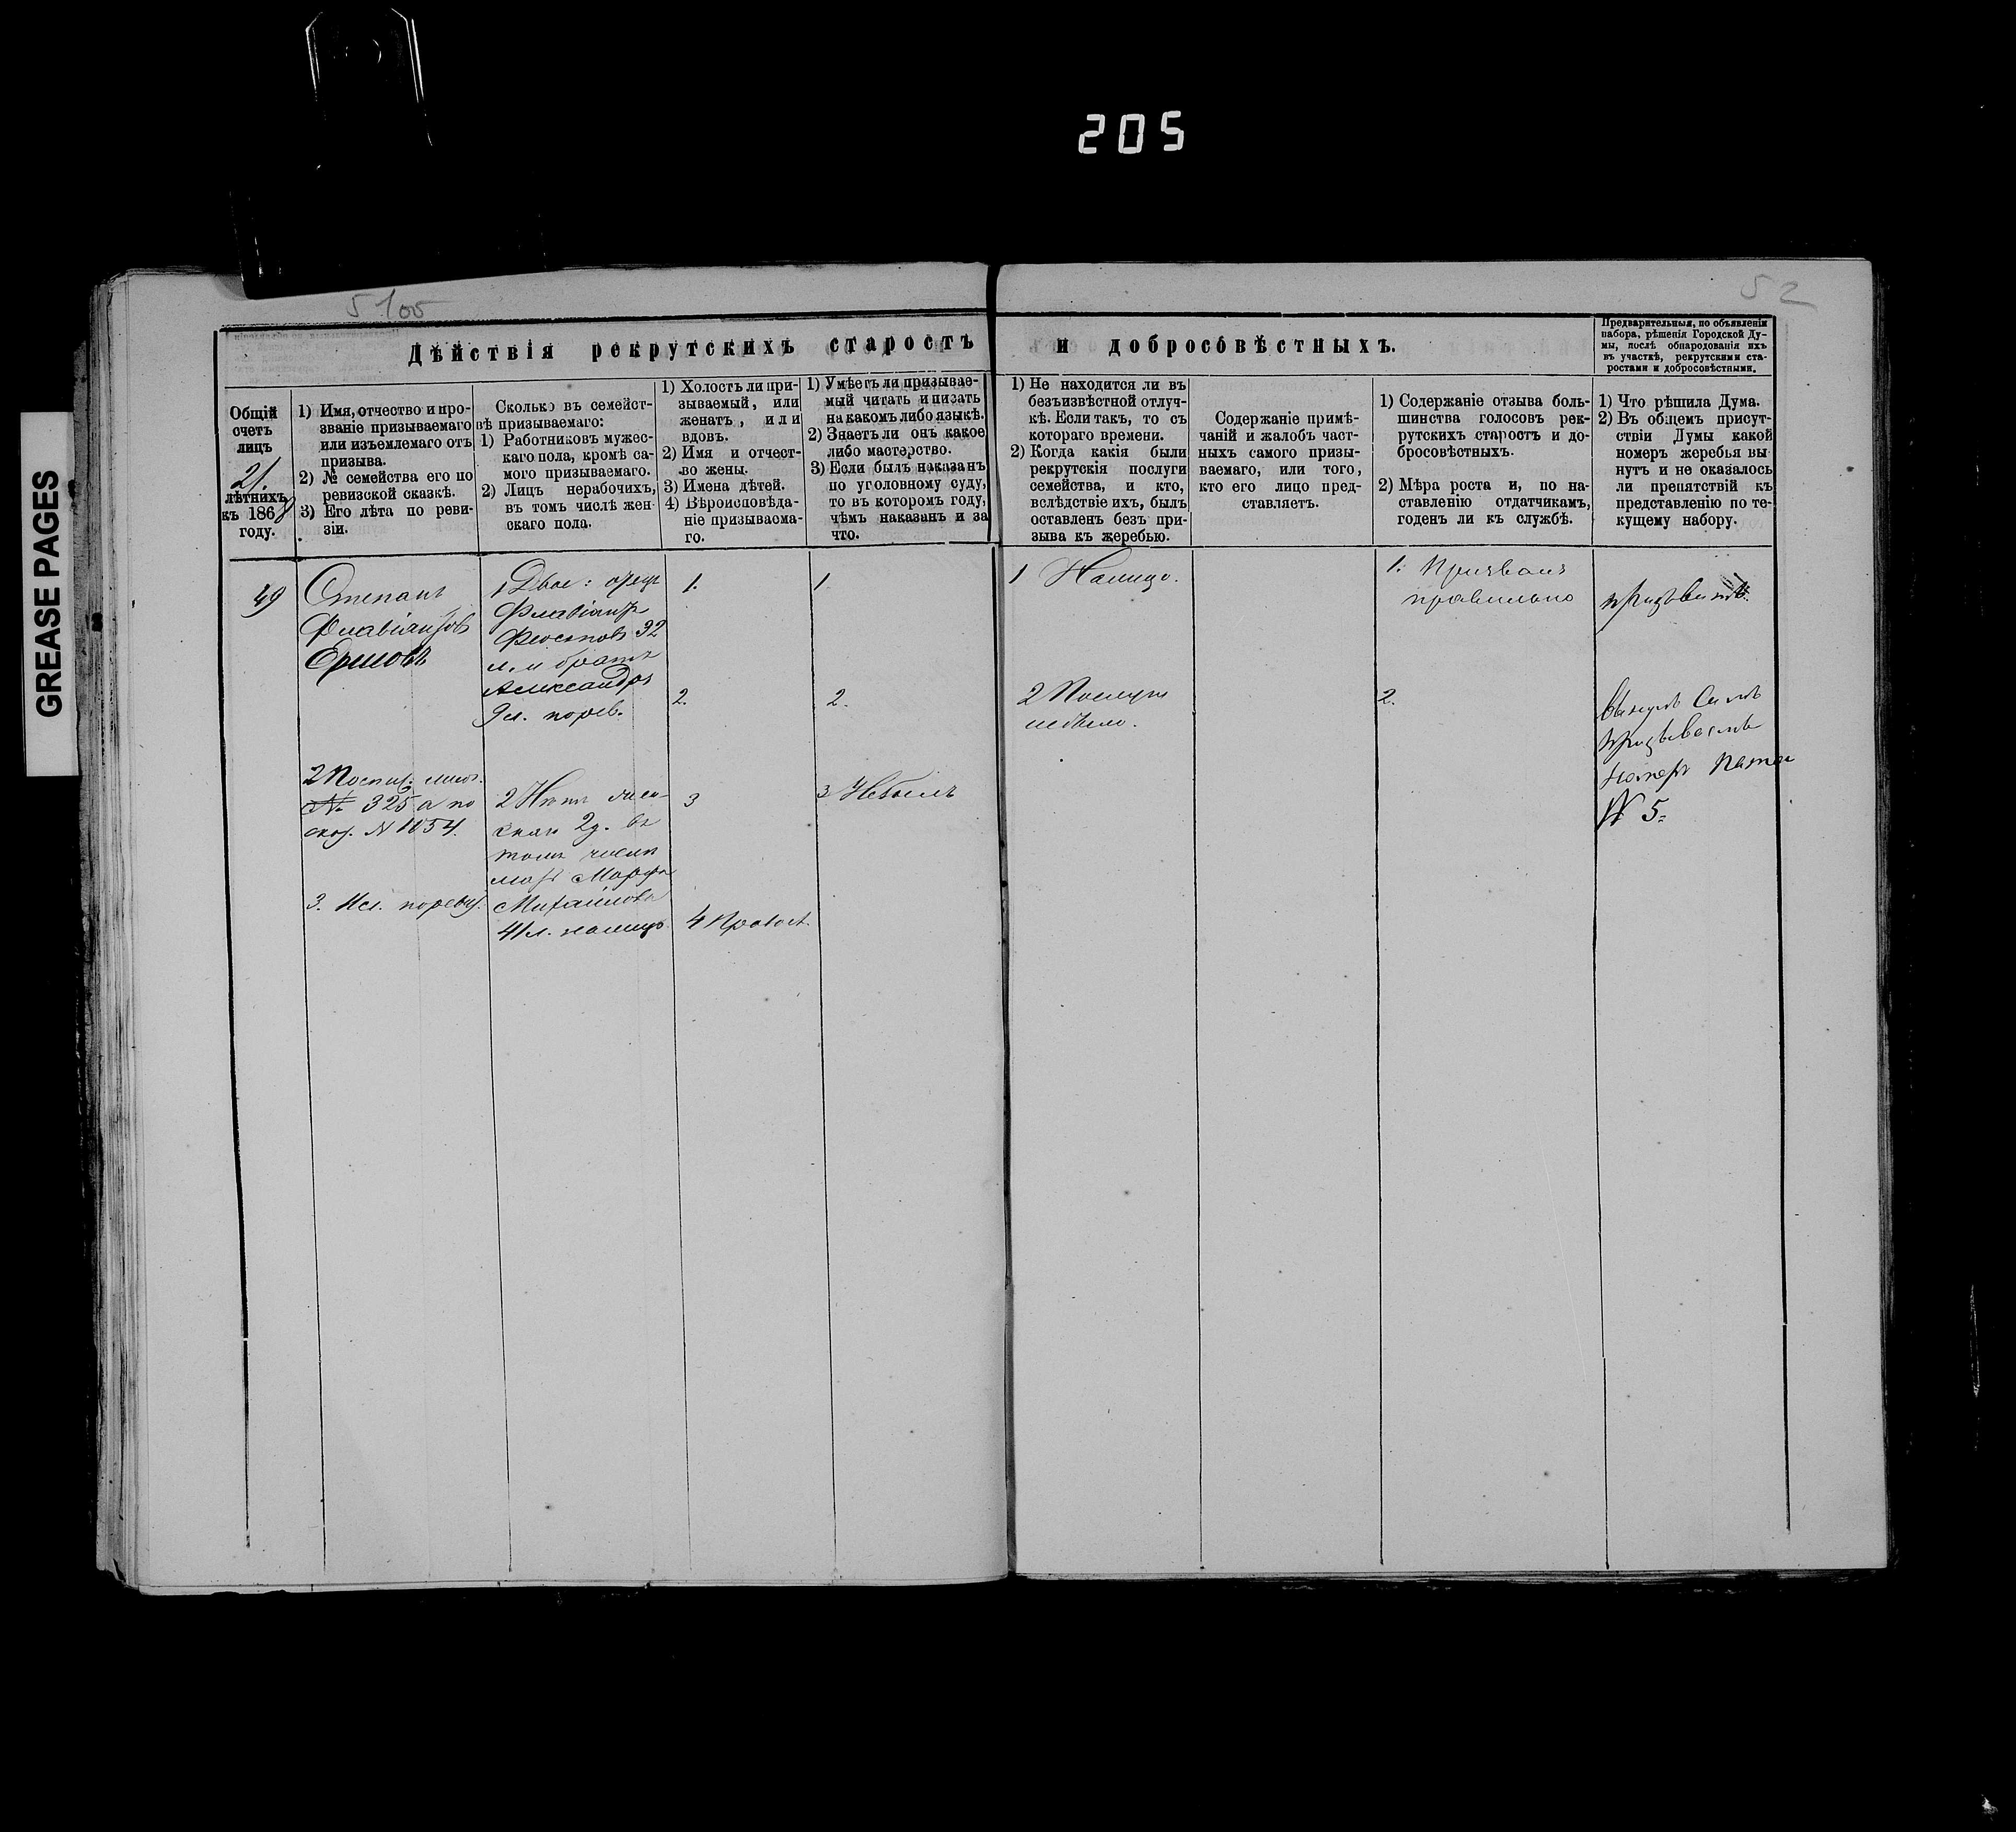 205
GREASE PAGES
5100
52
Дѣйствія рекрутскихъ старостъ и добросовѣстныхъ.
Предварительныя, по объявленіи
набора, рѣшенія Городской Ду-
мы, послѣ обнародованія ихъ
въ участкѣ, рекрутскими ста-
ростами и добросовѣстными.
Общій
счетъ
лицъ
21.
лѣтнихъ
къ 1868
году.
1) Имя, отчество и про-
званіе призываемаго
или изъемлемаго отъ
призыва.
2) № семейства его по
ревизской сказкѣ.
3) Его лѣта по реви-
зіи.
Сколько въ семейст-
вѣ призываемаго:
1) Работниковъ мужес-
каго пола, кромѣ са-
мого призываемаго.
2) Лицъ нерабочихъ,
въ томъ числѣ жен-
скаго пола.
1) Холостъ ли при-
зываемый, или
женатъ, или
вдовъ.
2) Имя и отчест-
во жены.
3) Имена дѣтей.
4) Вѣроисповѣда-
ніе призываема-
го.
1) Умѣетъ ли призывае-
мый читать и писать
на какомъ либо языкѣ.
2) Знаетъ ли онъ какое
либо мастерство.
3) Если былъ наказанъ
по уголовному суду,
то въ которомъ году,
чѣмъ наказанъ и за
что.
1) Не находится ли въ
безъизвѣстной отлуч-
кѣ. Если такъ, то съ
котораго времени.
2) Когда какія были
рекрутскія послуги
семейства, и кто,
вслѣдствіе ихъ, былъ
оставленъ безъ при-
зыва къ жеребью.
Содержаніе примѣ-
чаній и жалобъ част-
ныхъ самого призы-
ваемаго, или того,
кто его лицо пред-
ставляетъ.
1) Содержаніе отзыва боль-
шинства голосовъ рек-
рутскихъ старостъ и до-
бросовѣстныхъ.
2) Мѣра роста и, по на-
ставленію отдатчикамъ,
годенъ ли къ службѣ.
1) Что рѣшила Дума.
2) Въ общемъ присут-
ствіи Думы какой
номеръ жеребья вы-
нутъ и не оказалось
ли препятствій къ
представленію по те-
кущему набору.
49
Степанъ
Флавіановъ
Ершовъ
№ 325 а по
сказ. N 1054.
3. 11 л. по ревиз.
1 Двое: отецъ
Флавіанъ
Феоктистовъ 32
л. и братъ
Александръ
9 л. по рев.
2 Нѣтъ жен-
скаго 2 д. въ
томъ числѣ
мать Марфа
Михайлова
41 л. налицо
1.
2.
3
4 Правос.
1
2.
3 Небылъ
1 Налицо.
2 Послуги
небыло.
1. Призванъ
правильно
2.
Вынутъ Самимъ
призываемымъ
номеръ пятый
№ 5